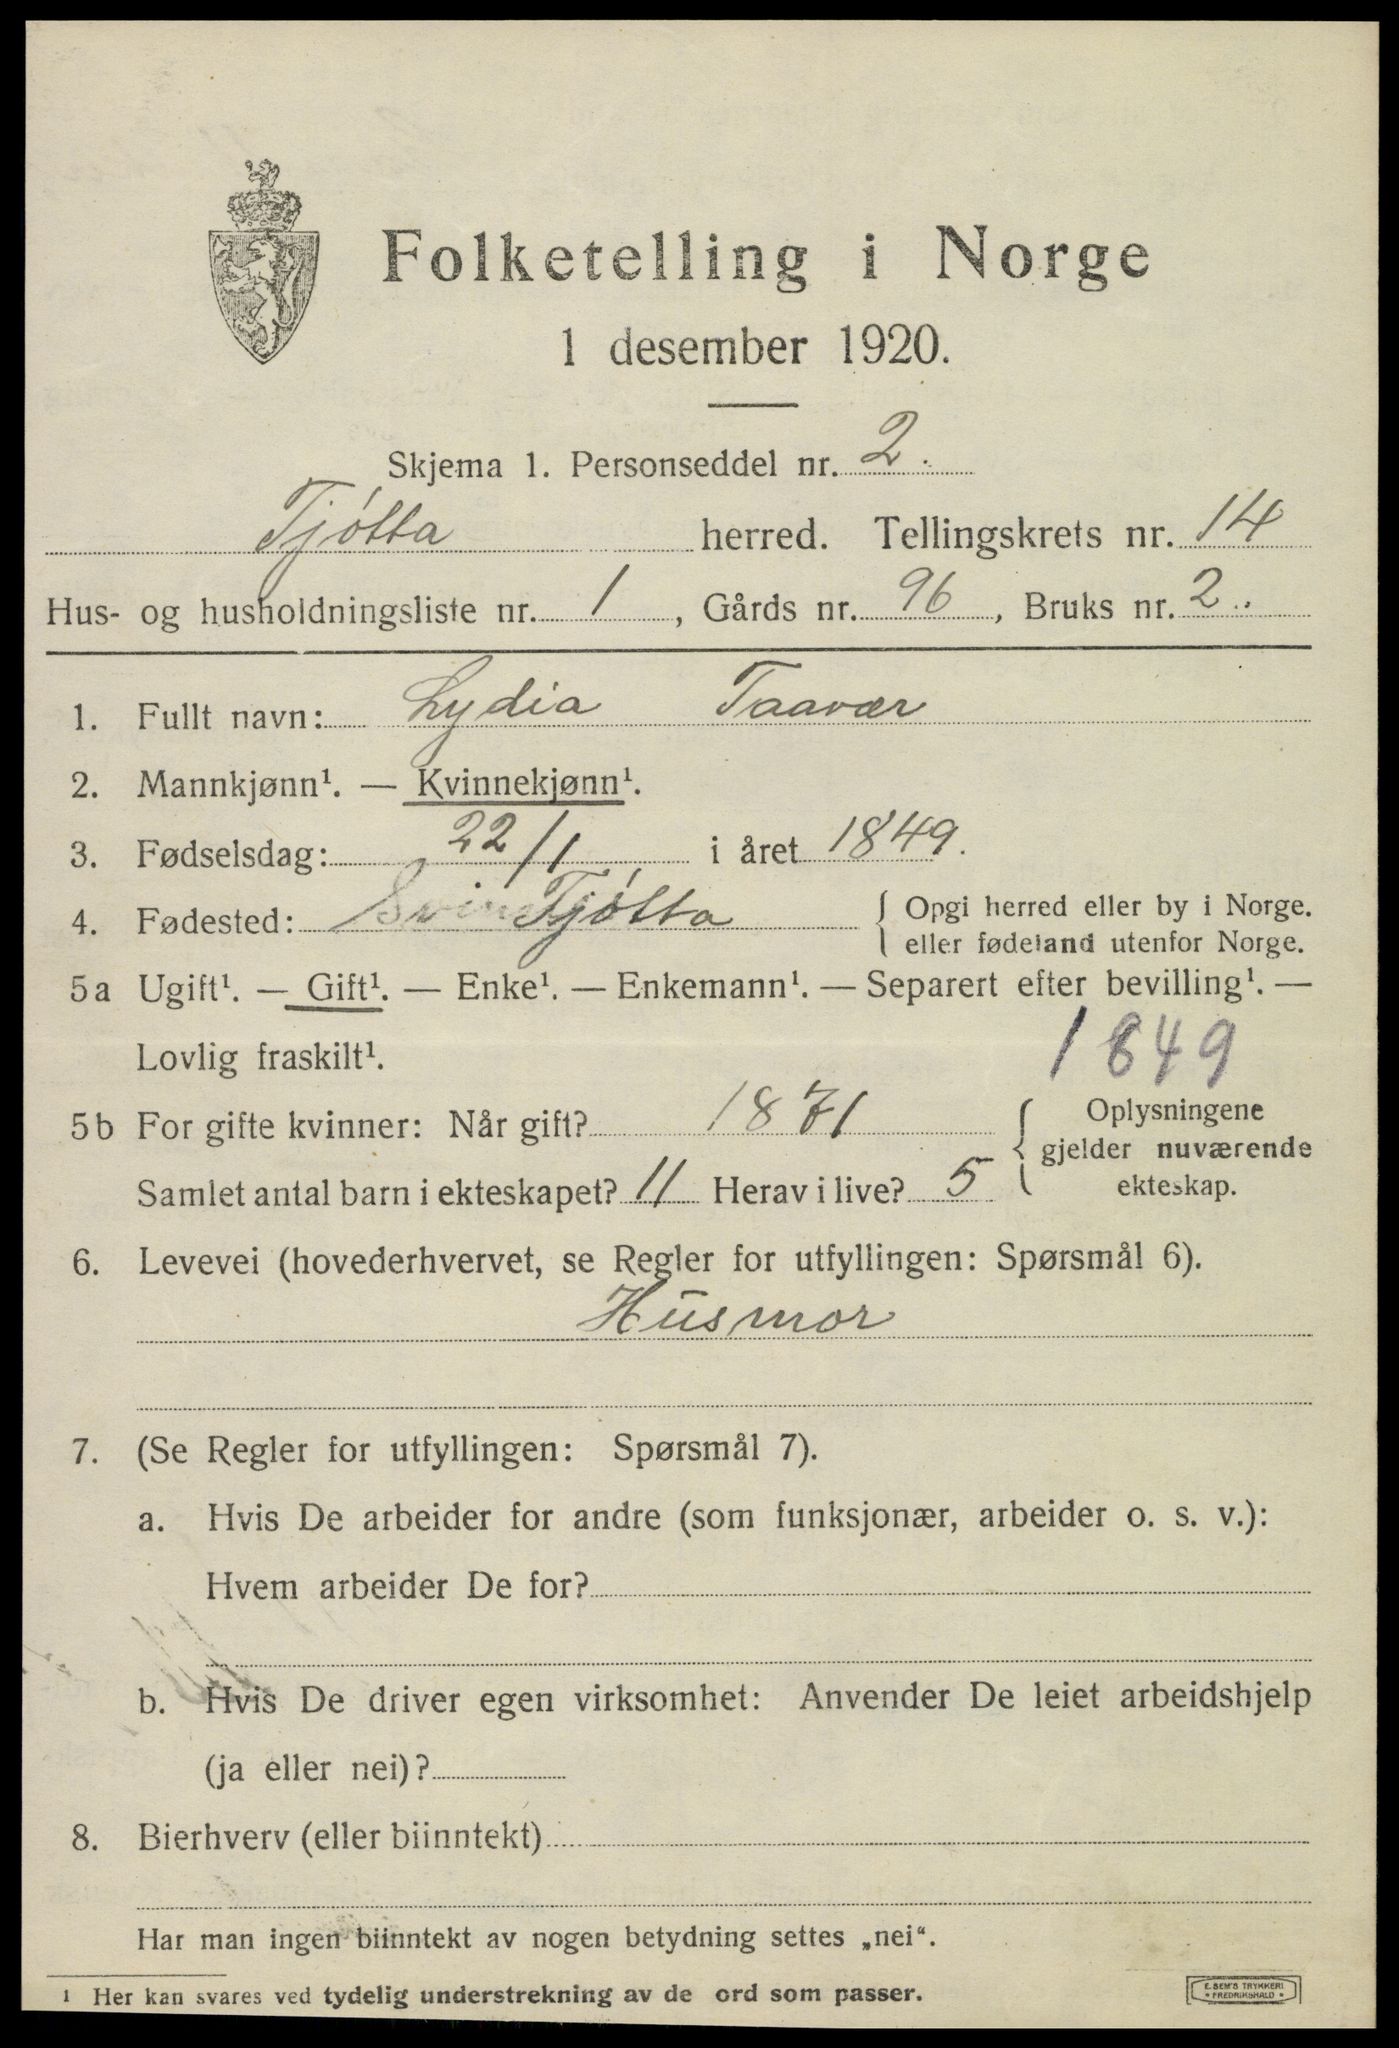 Folketelling i Norge
1 desember 1920.
Skjema 1. Personseddel nr. 2.
Tjótta herred. Tellingskrets nr. 14
Hus- og husholdningsliste nr. 1, Gårds nr. 96, Bruks nr. 2..
1. Fullt navn: Lydia Taavær
2. Mannkjønn¹. — Kvinnekjønn¹.
3. Fødselsdag: 22/1 i året 1849.
4. Fødested: Tjótta { Opgi herred eller by i Norge.
eller fødeland utenfor Norge.
5a Ugift¹. — Gift¹. — Enke¹. — Enkemann¹. — Separert efter bevilling¹. —
Lovlig fraskilt¹. 1849
5b For gifte kvinner: Når gift? 1871 { Oplysningene
gjelder nuværende
Samlet antal barn i ekteskapet? 11 Herav i live? 5 ekteskap.
6. Levevei (hovederhvervet, se Regler for utfyllingen: Spørsmål 6).
Husmor
7. (Se Regler for utfyllingen: Spørsmål 7).
a. Hvis De arbeider for andre (som funksjonær, arbeider o. s. v.):
Hvem arbeider De for?
b. Hvis De driver egen virksomhet: Anvender De leiet arbeidshjelp
(ja eller nei)?
8. Bierhverv (eller biinntekt)
Har man ingen biinntekt av nogen betydning settes „nei“.
¹ Her kan svares ved tydelig understrekning av de ord som passer.
E. SEM'S TRYKKERI
• FREDRIKSHALD •